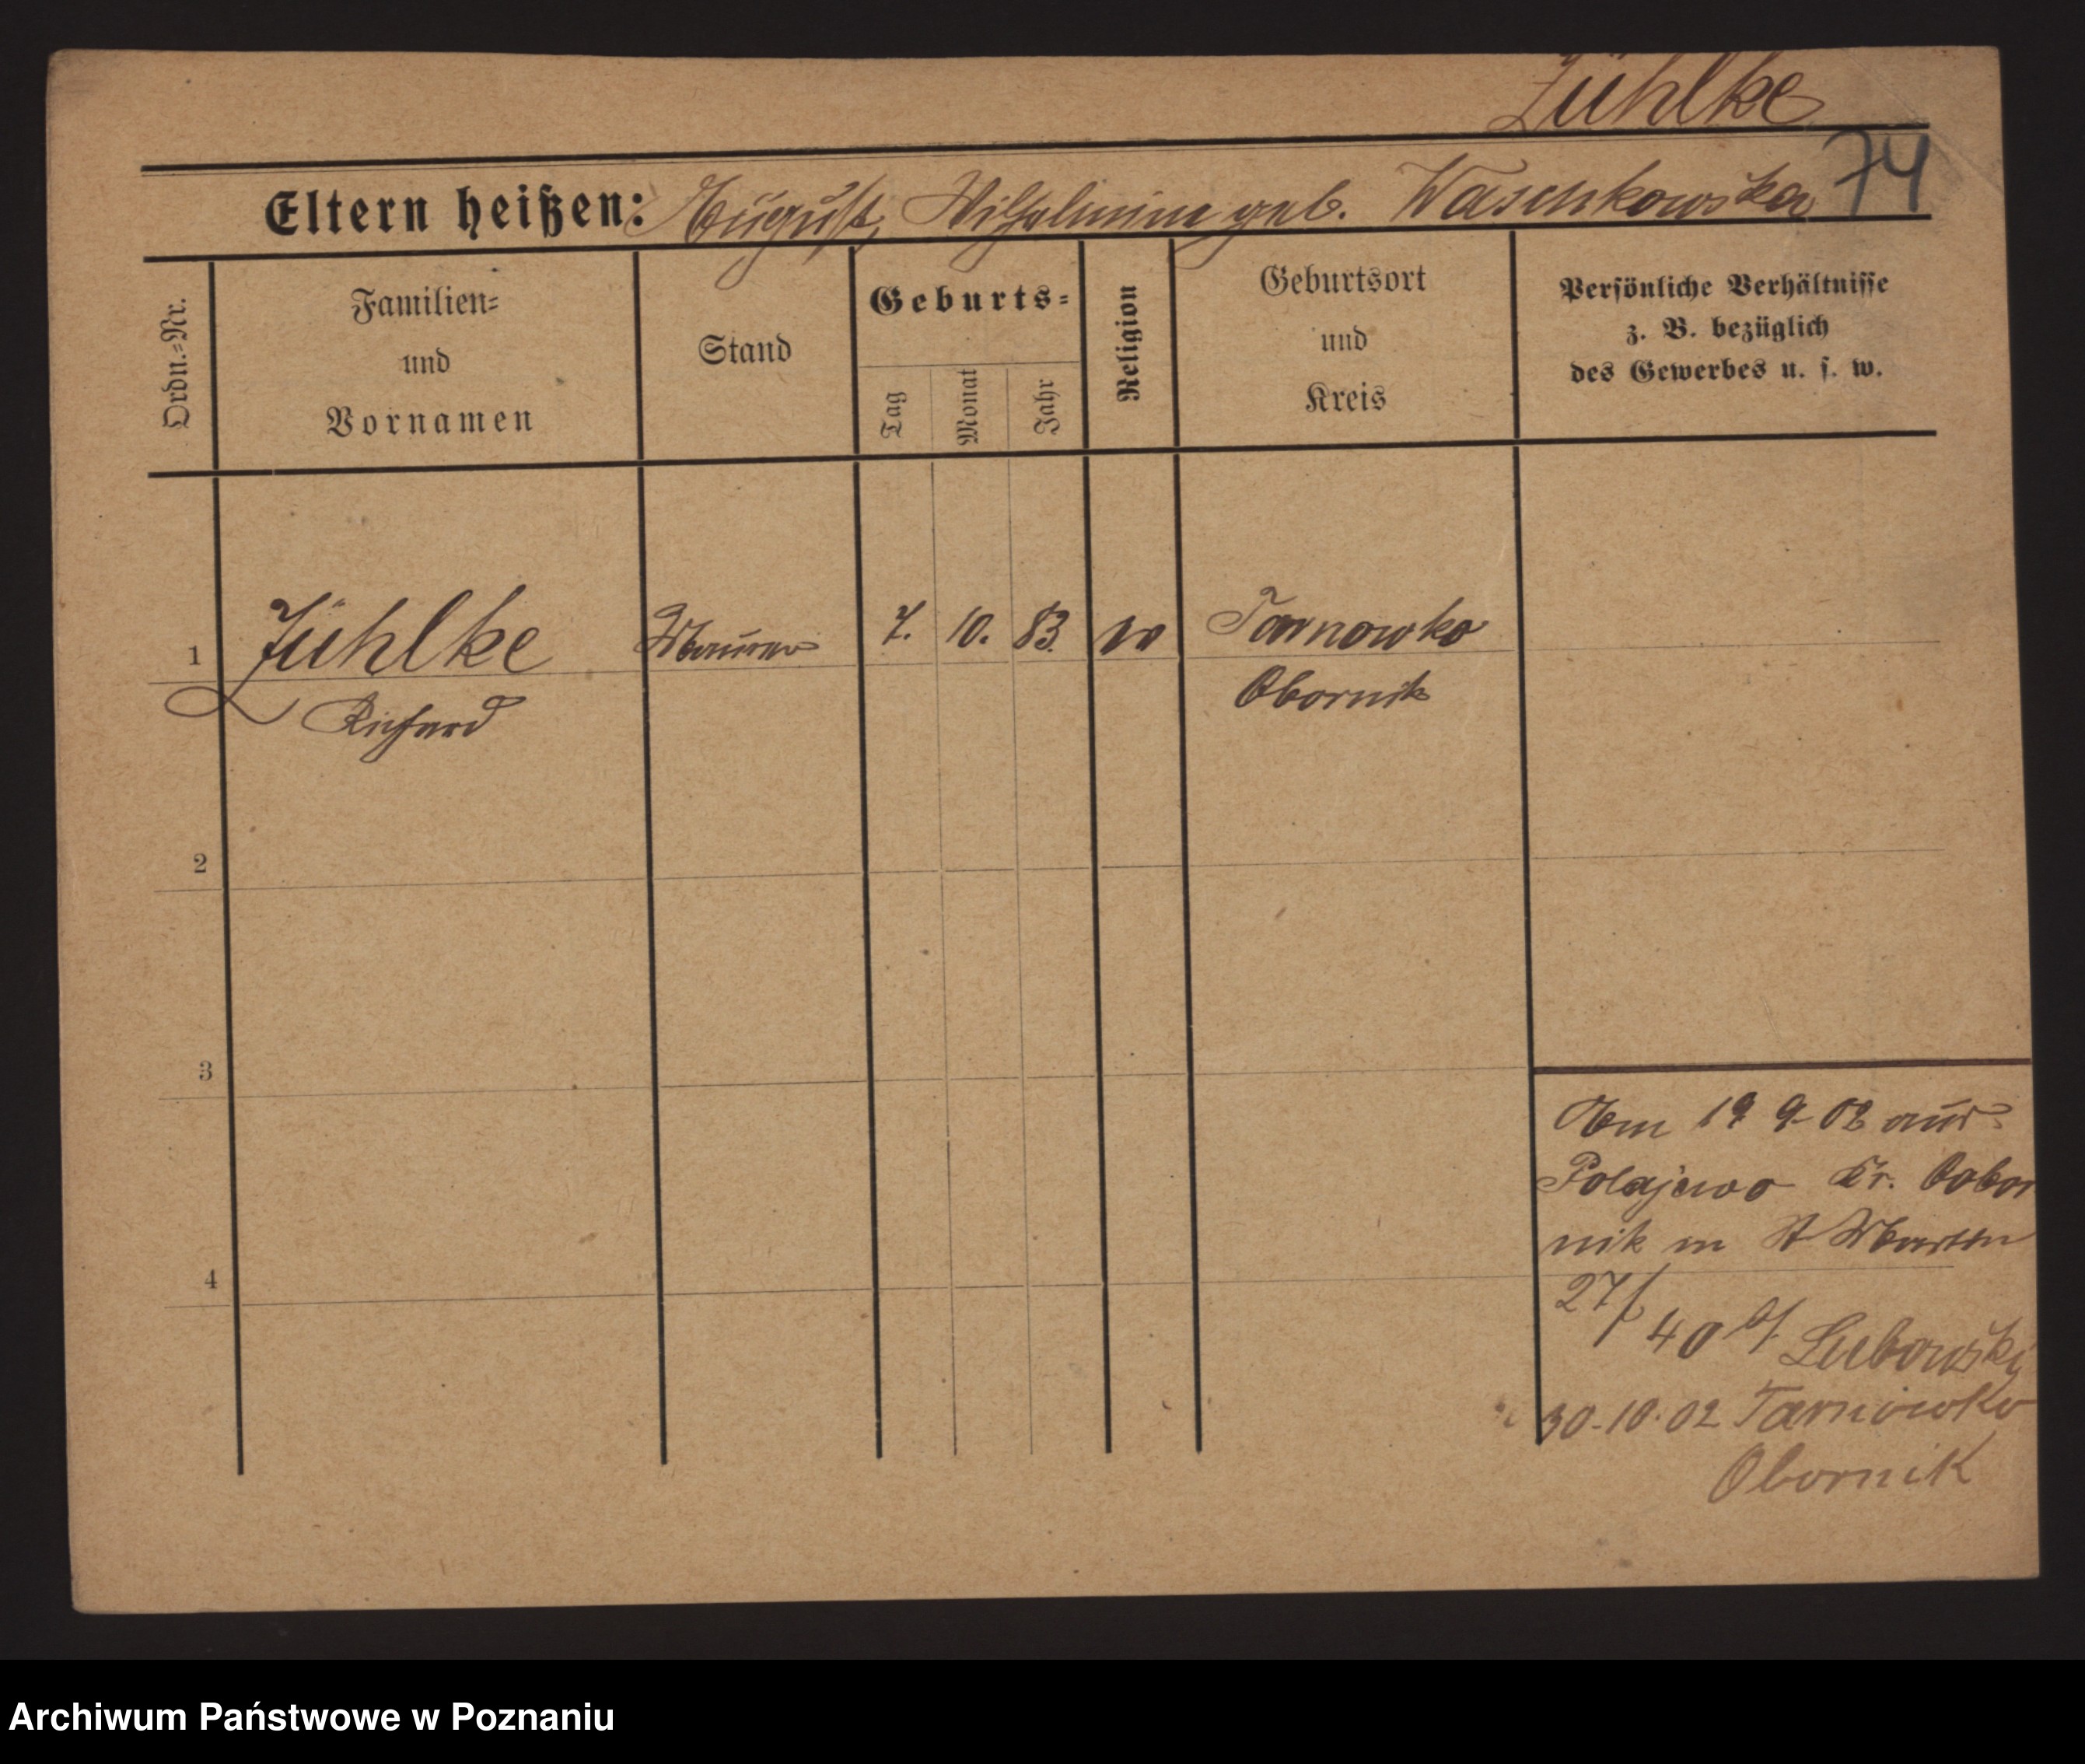 Zühlke
74
Eltern heißen: August, Wilhelmine geb. Waschkowska
Ordn.=Nr.
Familien=
und
Vornamen
Stand
Geburts=
Tag
Monat
Jahr
Religion
Geburtsort
und
Kreis
Persönliche Verhältnisse
z. B. bezüglich
des Gewerbes u. s. w.
1 Zühlke Maurer 7. 10. 83. Tarnowko
Richard Obornik
2
3
4
Am 19 9 02 aus
Polajewo Kr. Oobor
nik in St Martin
27/
40 b/ Lubowski
30-10.02 Tarnowko
Obornik
Archiwum Państwowe w Poznaniu